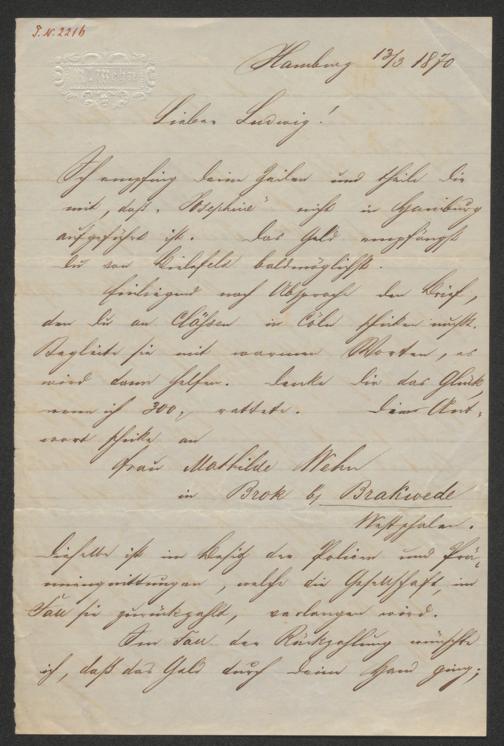 I. N. 2216
R. Wehn
Hamburg 13/3 1870
Lieber Ludwig!
Ich empfing deine Zeilen und theile Dir
mit, daß "Josephine" nicht in Hamburg
aufgeführt ist. Das Geld empfängst
Du von Bielefeld baldmöglichst.
Beiliegend nach Absprache den Brief,
den Du an Claßen in Cöln schicken mußt.
Begleite sie mit warmen Worten, es
wird dann helfen. Denke Dir das Glück
wenn ich 300,- rettete. Deine Ant-
wort schicke an
Frau Mathilde Wehn
in Brok b/ Brakwede
Westphalen.
Dieselbe ist im Besitz der Policen und Prä-
mienquittungen, welche die Gesellschaft, im
Fall sie zurückzahlt, verlangen wird.
Im Fall der Rückzahlung wünschte
ich, daß das Geld durch Deine Hand ging;